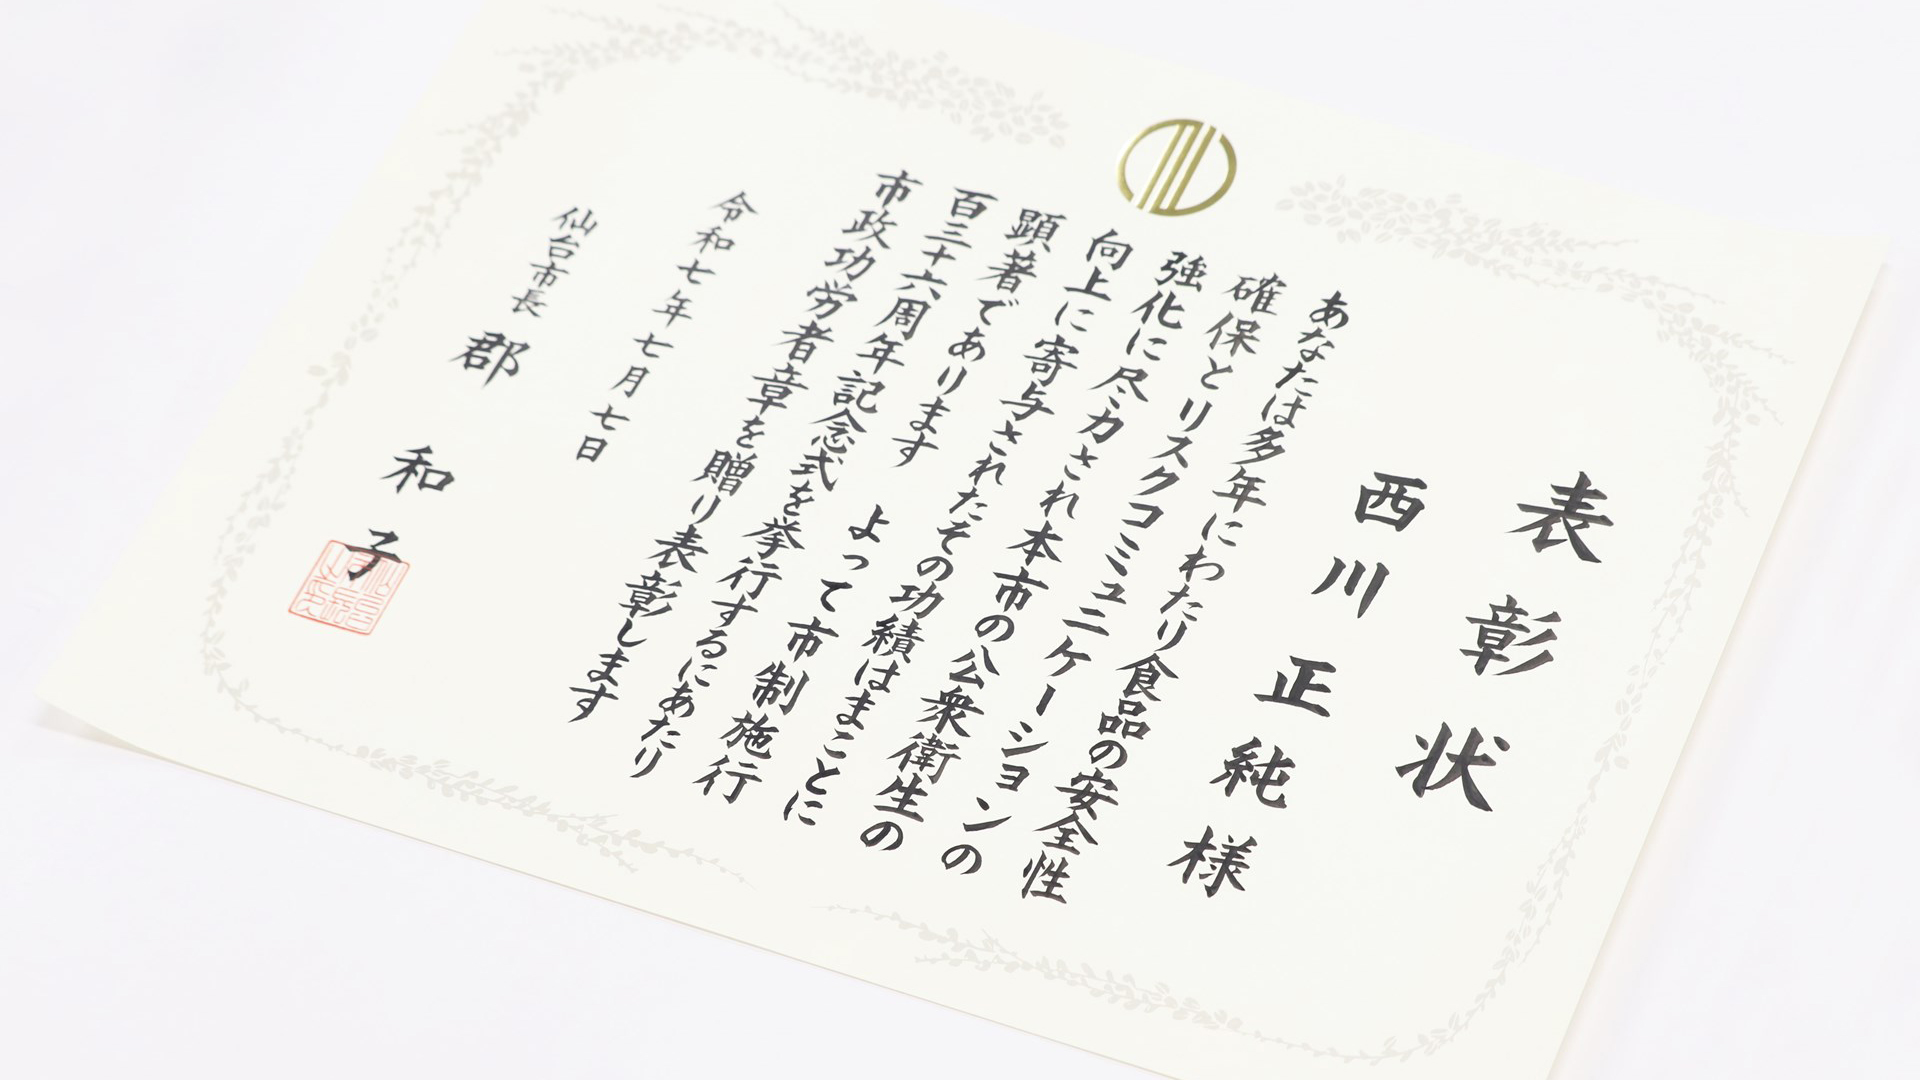 表彰状
西川正純様
あなたは多年にわたり食品の安全性
確保とリスクコミュニケーションの
強化に尽力され本市の公衆衛生の
向上に寄与されたその功績はまことに
顕著であります よって市制施行
百三十六周年記念式を挙行するにあたり
市政功労者章を贈り表彰します
令和七年七月七日
仙台市長 郡 和子